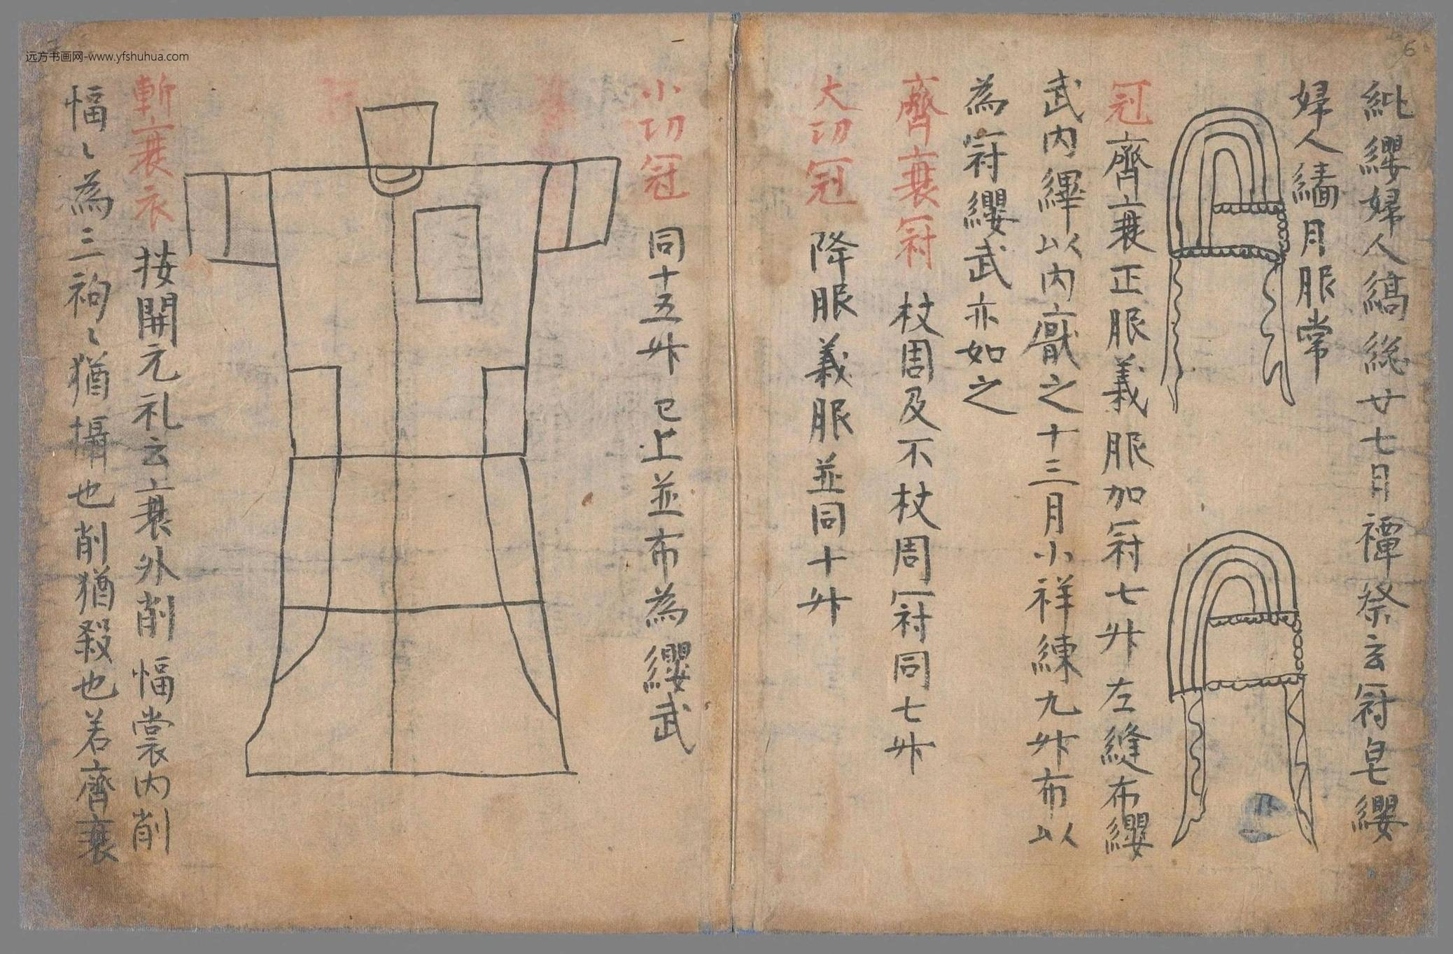 紕纓婦人縞緫廿七月禫祭玄冠皂纓
婦人繢月服常
冠齊衰正服義服加冠七升左縫布纓
武内繂以内厭之十三月小祥練九升布以
為冠纓武亦如之
齊衰冠杖周及不杖周冠同七升
大功冠降服義服並同十升
小功冠同十五升已上並布為纓武
斬衰衣按開元礼云衰外削幅裳内削
幅〻為三袧〻猶攝也削猶殺也若齊衰
远方书画网-www.yfshuhua.com
6